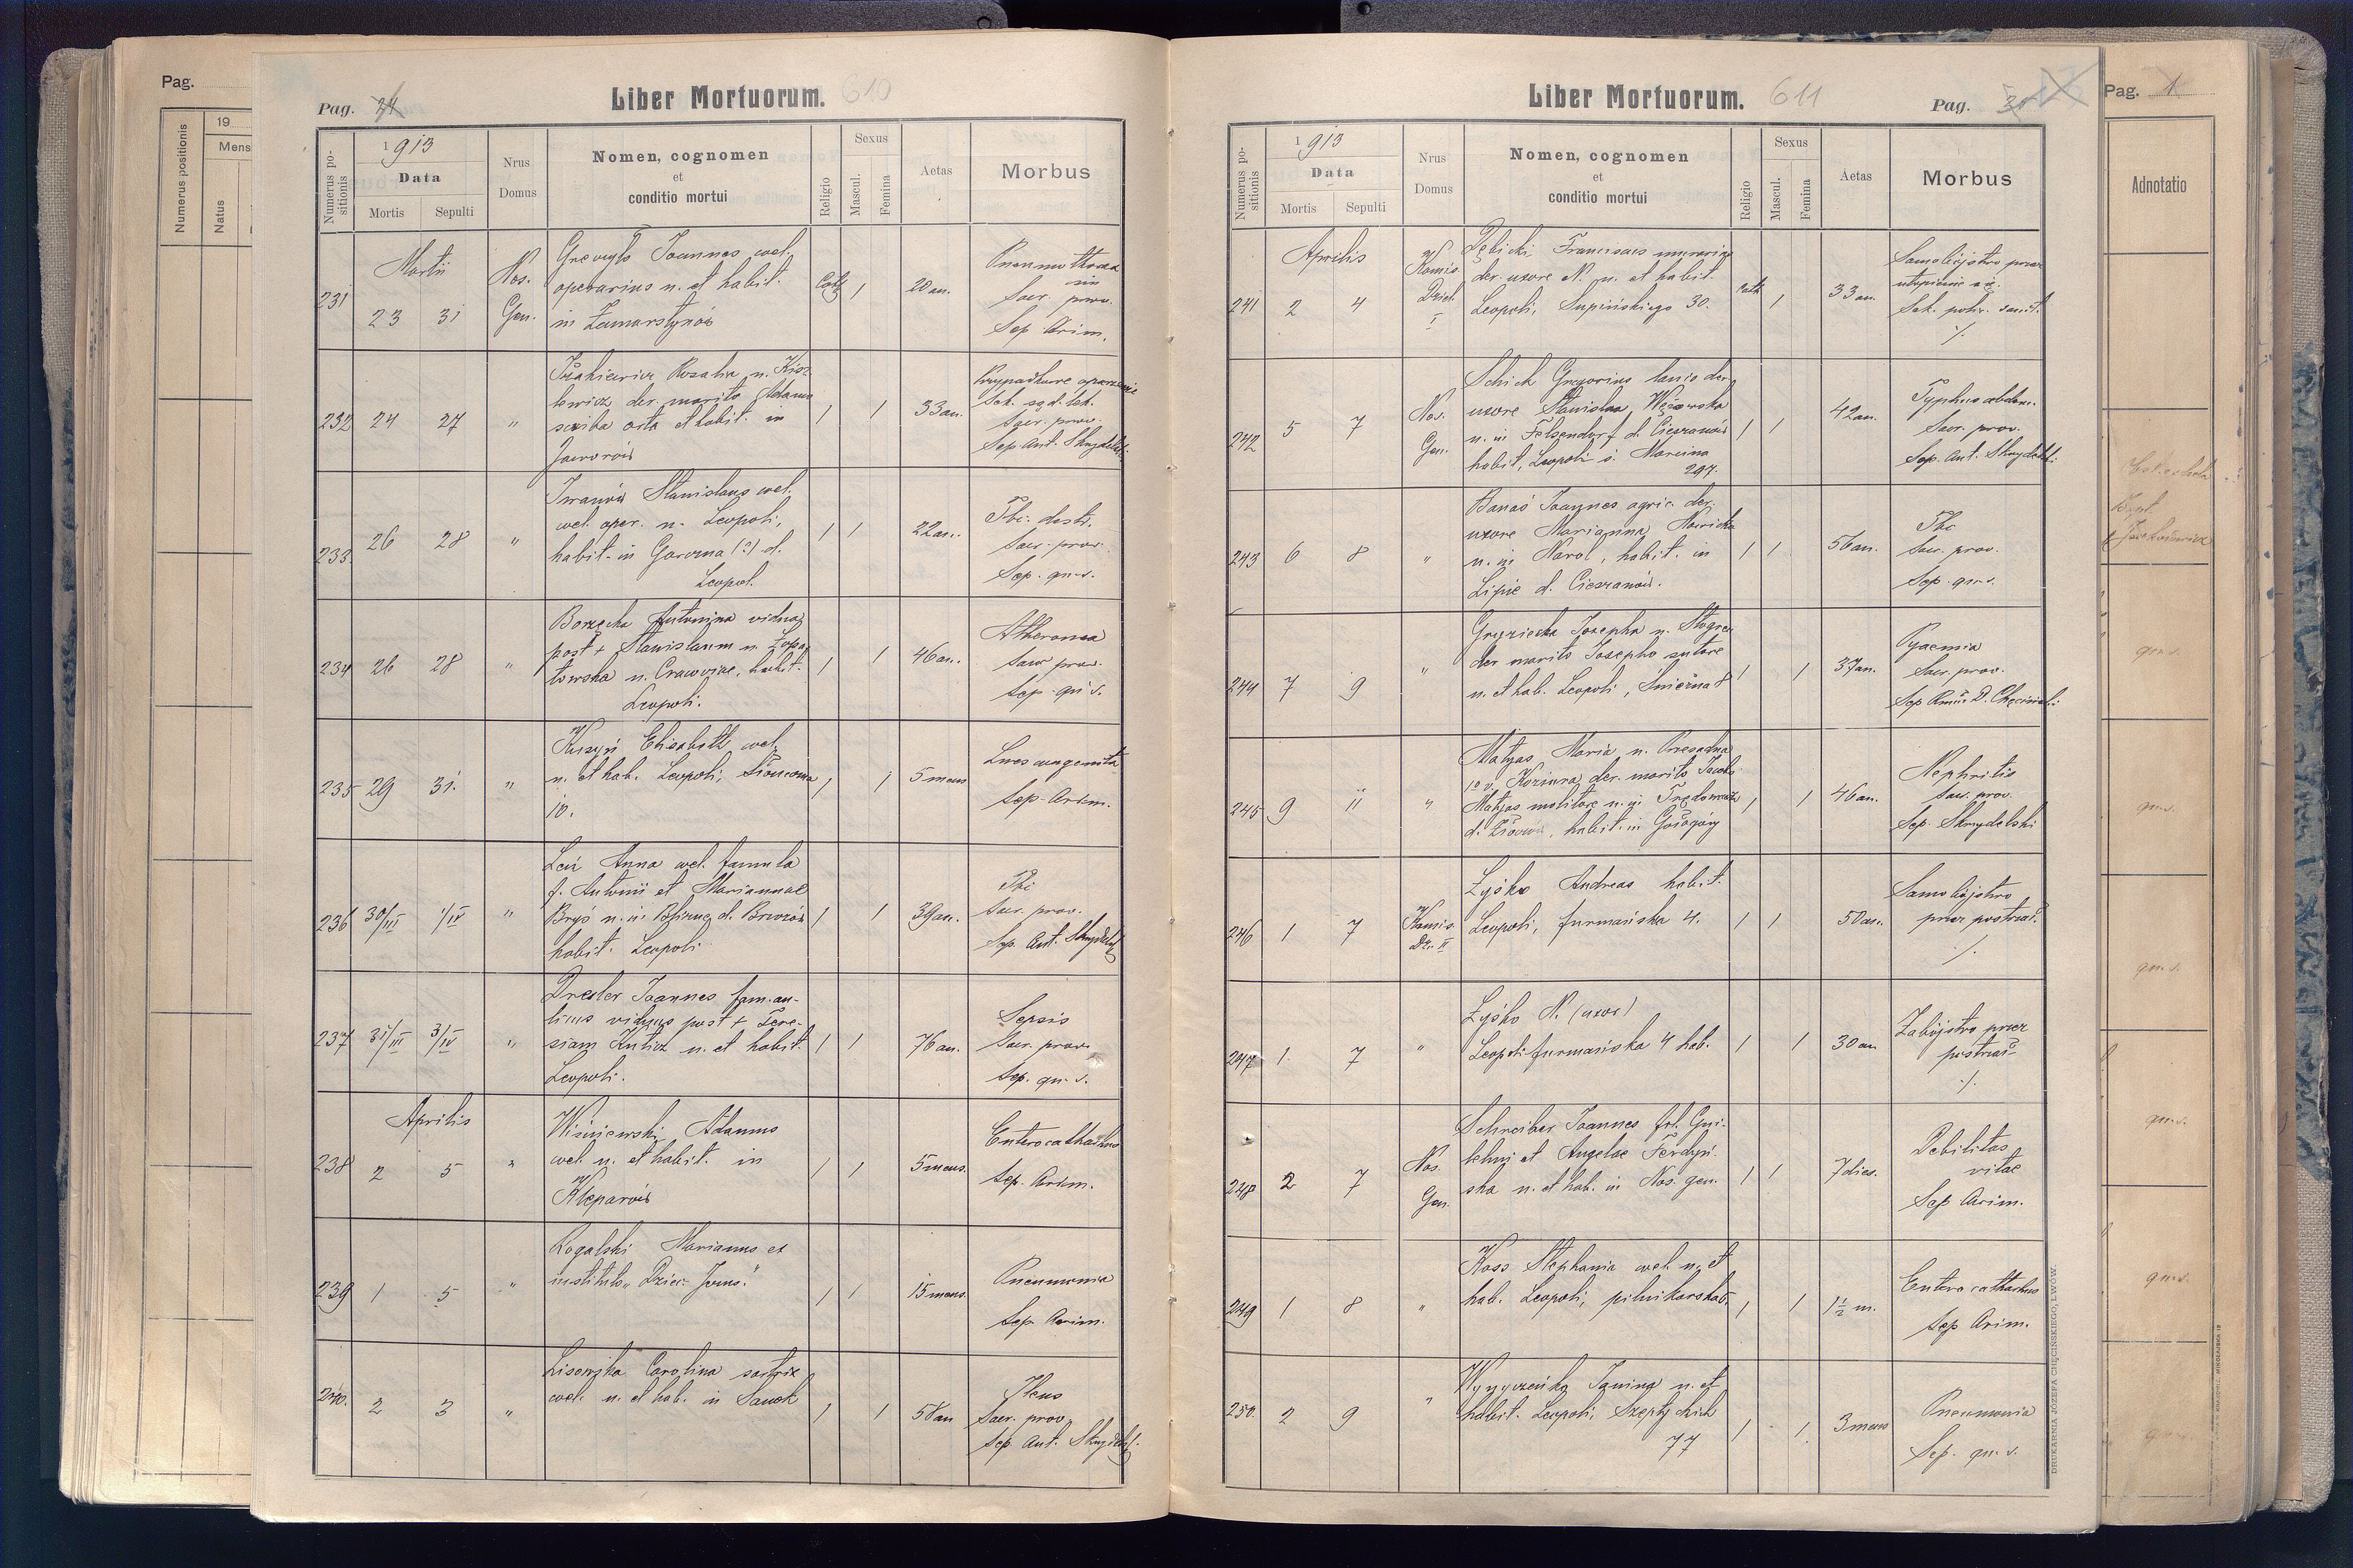 Pag.
Numerus positionis
19
Mens
Natus
Pag. 24
Liber Mortuorum. 610
Numerus po-
sitionis
1913
Data
Mortis
Sepulti
Nrus
Domus
Nomen, cognomen
et
conditio mortui
Religio
Sexus
Mascul.
Femina
Aetas
Morbus
231
Martii
23 31
Nos.
Gen.
Joannes cael.
operarius n. et habit.
in Zamarstynów
Cath
1
20 an.
Pneumothorax
sin
Sacr. prov.
Sep. Arim.
232 24 27 "
Rosalia n. Kisie-
lewicz der. marito Adamo
scriba orta et habit. in
Jaworów
1 1 33 an.
Przypadkowe oparzenie
Sek. sąd. lek.
Sacr. prov.
Sep. Ant. Skrydelski
233 26 28 "
Iwanów Stanislaus cael.
cael. oper. n. Leopoli,
habit. in (?) d.
Leopol.
1 1 22 an.
Tbc. dests.
Sacr. prov.
Sep. qu. s.
234 26 28 "
Borzęcka Antonina vidua
post + Stanislaum n. Łopa-
towska n. Cracoviae, habit.
Leopoli.
1 1 46 an.
Atheroma
Sacr. prov.
Sep. qu. s.
235 29 31. "
Elisabeth cael.
n. et hab. Leopoli,
10.
1 1 5 mens
Lues congenita
Sep. Arim.
236 30/III 1/IV "
Anna cael. famula
f. Antonii et Mariannae
Bryś n. in d. Brzozów
habit. Leopoli
1 1 39 an.
Tbc
Sacr. prov.
Sep. Ant. Skrydelski
237 31/III 3/IV "
Dresler Joannes fam. au-
licus viduus post + Tere-
siam n. et habit.
Leopoli.
1 1 76 an.
Sepsis
Sacr. prov.
Sep. qu. s.
Aprilis
238 2 5 "
Wiśniewski Adamus
cael. n. et habit. in
Kleparów
1 1 5 mens.
Enterocatharhus
Sep. Arim.
239 1 5 "
Rogalski Marianus ex
instituto „Dziec. Jezus."
1 1 15 mens.
Pneumonia
Sep. Arim.
240. 2 3 "
Lisowska Carolina sartrix
cael. n. et hab. in Sanok
1 1 58 an
Ileus
Sacr. prov.
Sep. Ant. Skrydelski
Liber Mortuorum. 611
Pag.
Numerus po-
sitionis
1913
Data
Mortis
Sepulti
Nrus
Domus
Nomen, cognomen
et
conditio mortui
Religio
Sexus
Mascul.
Femina
Aetas
Morbus
Aprilis
241 2 4
Komis.
Dziel.
I
Dębicki Franciscus murarius
der. uxore N. n. et habit.
Leopoli, Supińskiego 30.
Cath
1
33 an.
Samobójstwo przez
utopienie się.
Sek. polic. sanit.
./.
242 5 7
Nos.
Gen.
Schick Gregorius lanio der.
uxore Stanislaa
n. in Felsendorf d. Cieszanów
habit. Leopoli ś. Marcina
297.
1 1 42 an.
Typhus abdom.
Sacr. prov.
Sep. Ant. Skrydelski
243 6 8 "
Banaś Joannes agric. der.
uxore Marianna
n. in Narol, habit. in
Lipie d. Cieszanów.
1 1 56 an.
Tbc
Sacr. prov.
Sep. qu. s.
244 7 9 "
Josepha n.
der marito Josepho sutore
n. et hab. Leopoli, Śnieżna 8
1 1 37 an.
Pyaemia
Sacr. prov.
Sep. D. Chęciński
245 9 11 "
Matyas Maria n.
1o v. der. marito Jacobo
Matyas molitore n. in
d. Złoczów, habit. in Gołogóry
1 1 46 an.
Nephritis
Sacr. prov.
Sep. Skrydelski
246 1 7
Komis.
Dz. II
Łyśko Andreas habit.
Leopoli, furmańska 4.
1 1 50 an.
Samobójstwo
przez postrzał.
./.
247 1. 7 "
Łyśko N. (uxor)
Leopoli furmańska 4 hab.
1 1 30 an
Zabójstwo przez
postrzał
./.
248 2 7
Nos.
Gen.
Schreiber Joannes fil. Gui-
lelmi et Angelae Ferdyń-
ska n. et hab. in Nos. gen.
1 1 7 dies.
Debilitas
vitae
Sep Arim.
249 1 8 "
Koss Stephania cael. n. et
hab. Leopoli, pilnikarska
1 1 1½ m.
Enterocatharhus
Sep Arim.
250. 2 9 "
Janina n. et
habit. Leopoli, Szeptyckich
77
1 1 3 mens
Pneumonia
Sep. qu. s.
DRUKARNIA JÓZEFA CHĘCIŃSKIEGO, LWÓW.
Pag. 1
Adnotatio
qu. s.
qu. s.
qu. s.
qu. s.
qu. s.